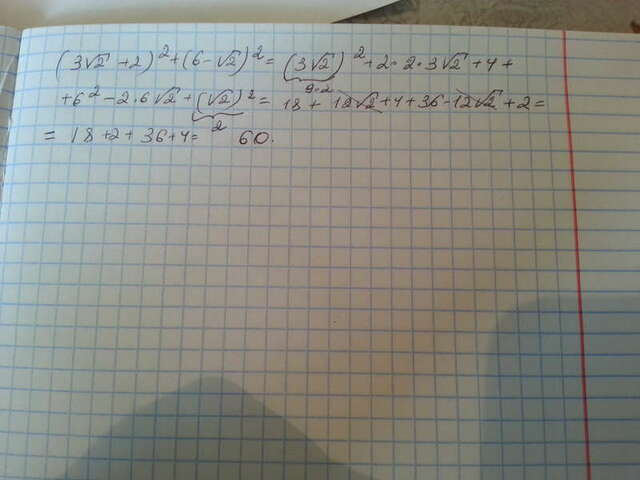 (3√2 +2)² + (6-√2)² = (3√2)² + 2·2·3√2 + 4 +
9·2
+ 6² - 2·6√2 + (√2)² = 18 + 12√2 + 4 + 36 - 12√2 + 2 =
2
= 18 + 2 + 36 + 4 = 60.